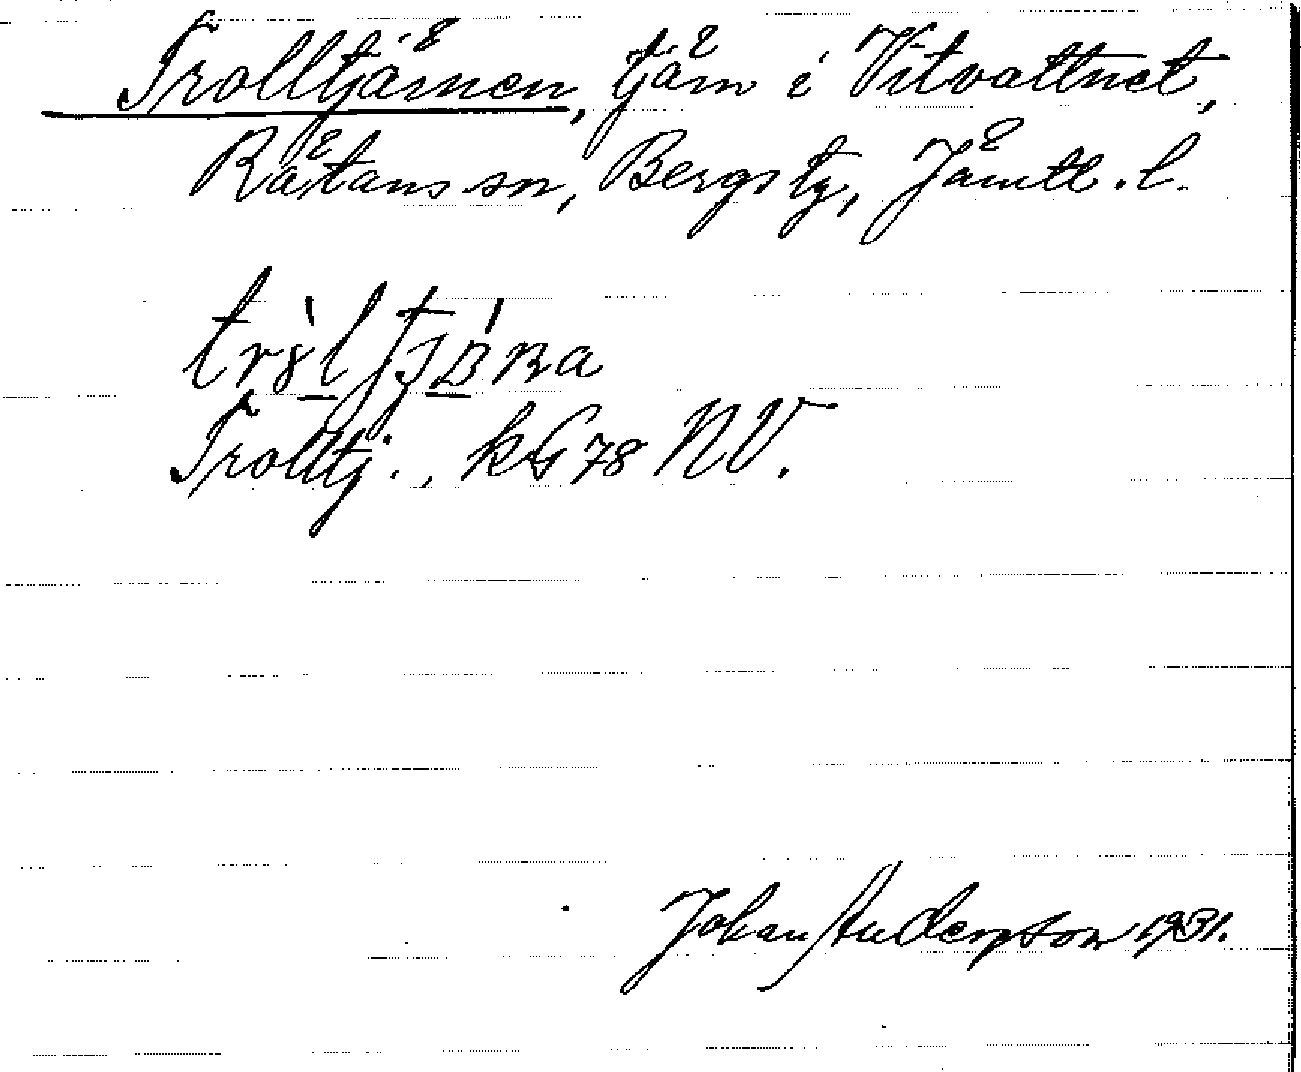 Trolltjärnen, tjärn i Vitvattnet,
Rätans sn, Bergs tg, Jämtl. l.
Trolltj., kG 78 NV.
Johan Anderson 1931.